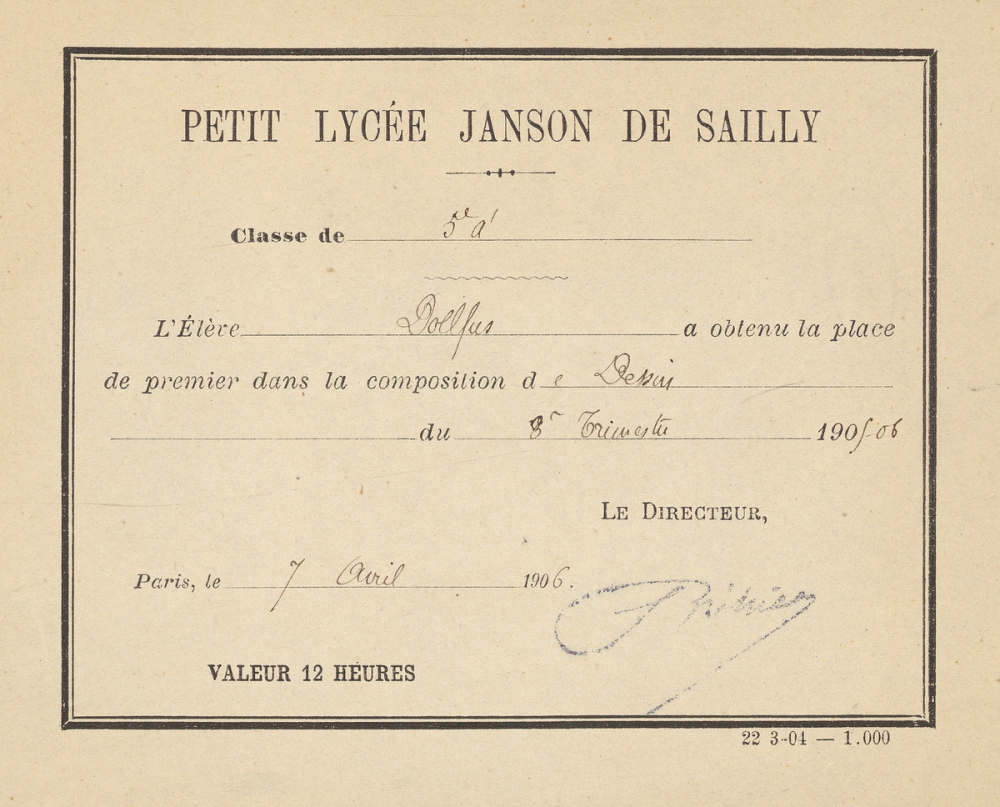 PETIT LYCÉE JANSON DE SAILLY
Classe de 5e a'
L'Élève Dollfus a obtenu la place
de premier dans la composition de Dessin
du Trimestre 1905-06
LE DIRECTEUR,
Paris, le 7 Avril 1906.
VALEUR 12 HEURES
22 3-04 — 1.000